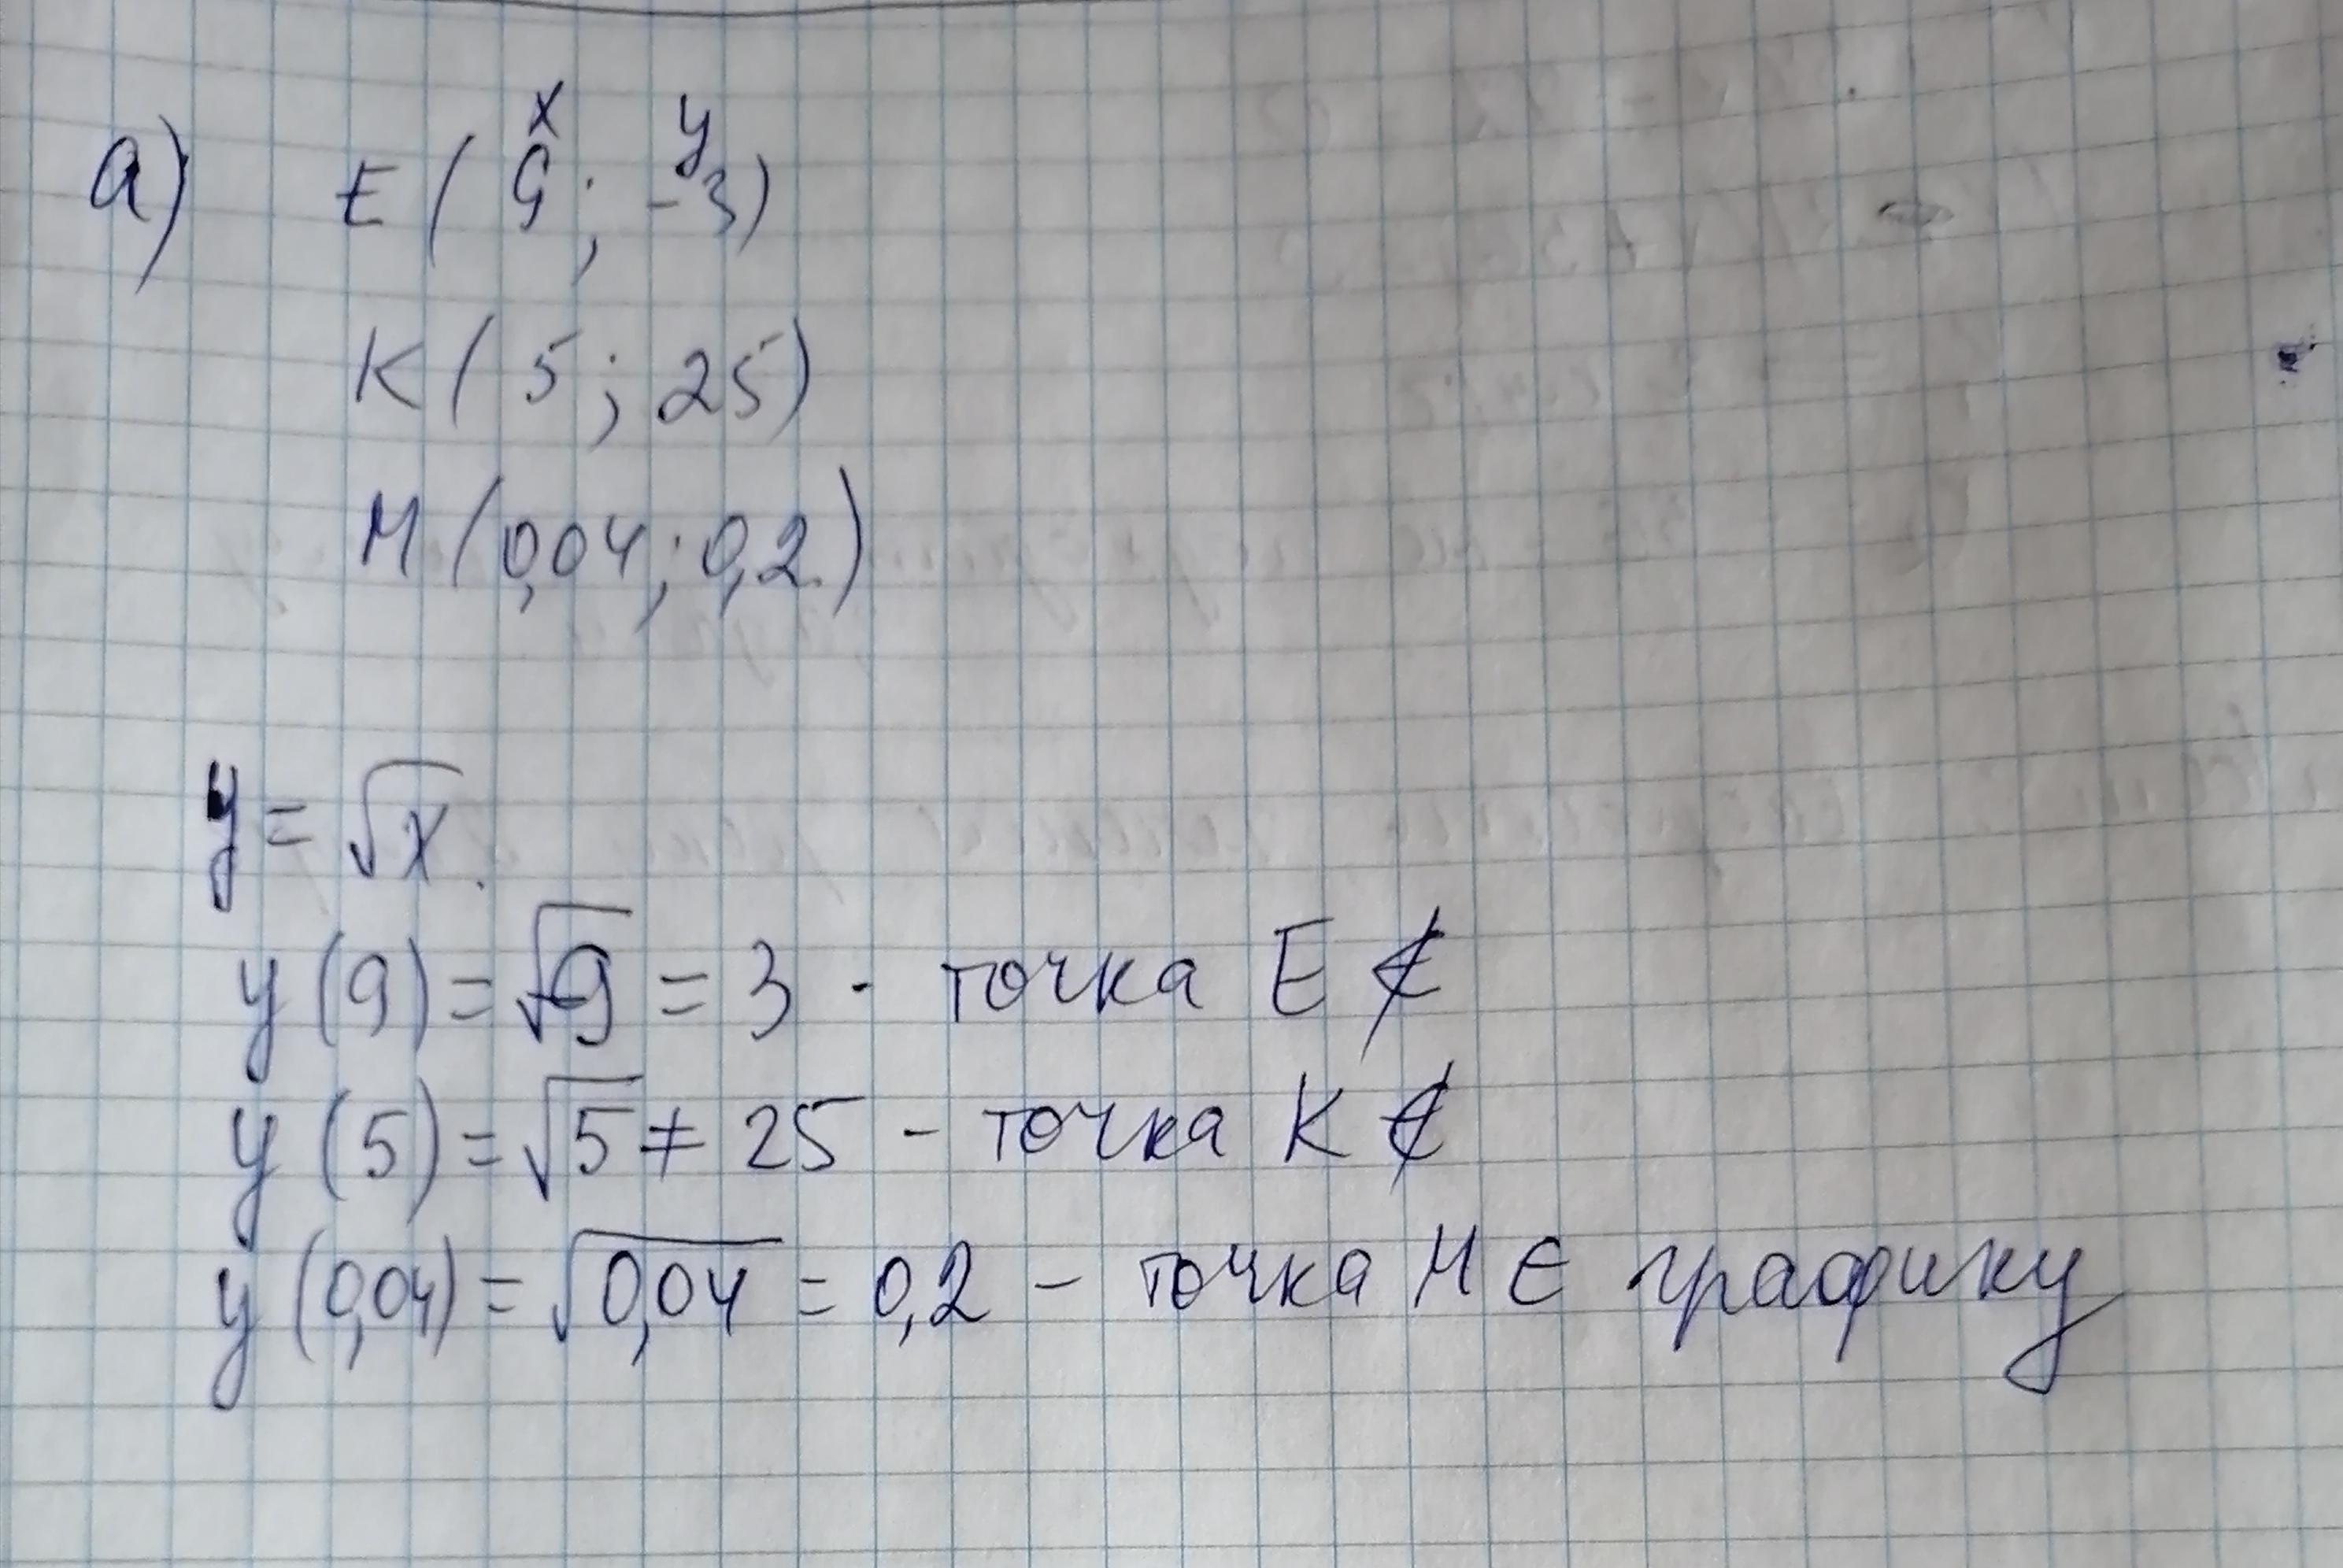 а) E ( 9 ; -3)
x y
K ( 5 ; 25)
M (0,04 ; 0,2)
y = √x
y (9) = √9 = 3 - точка E ∉
y (5) = √5 ≠ 25 - точка K ∉
y (0,04) = √0,04 = 0,2 - точка M ∈ графику